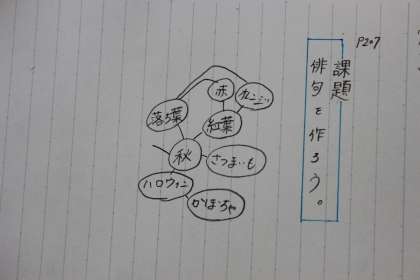 P207
課題
俳句を作ろう。
赤
オレンジ
落ち葉
紅葉
秋
さつまいも
ハロウィン
かぼちゃ